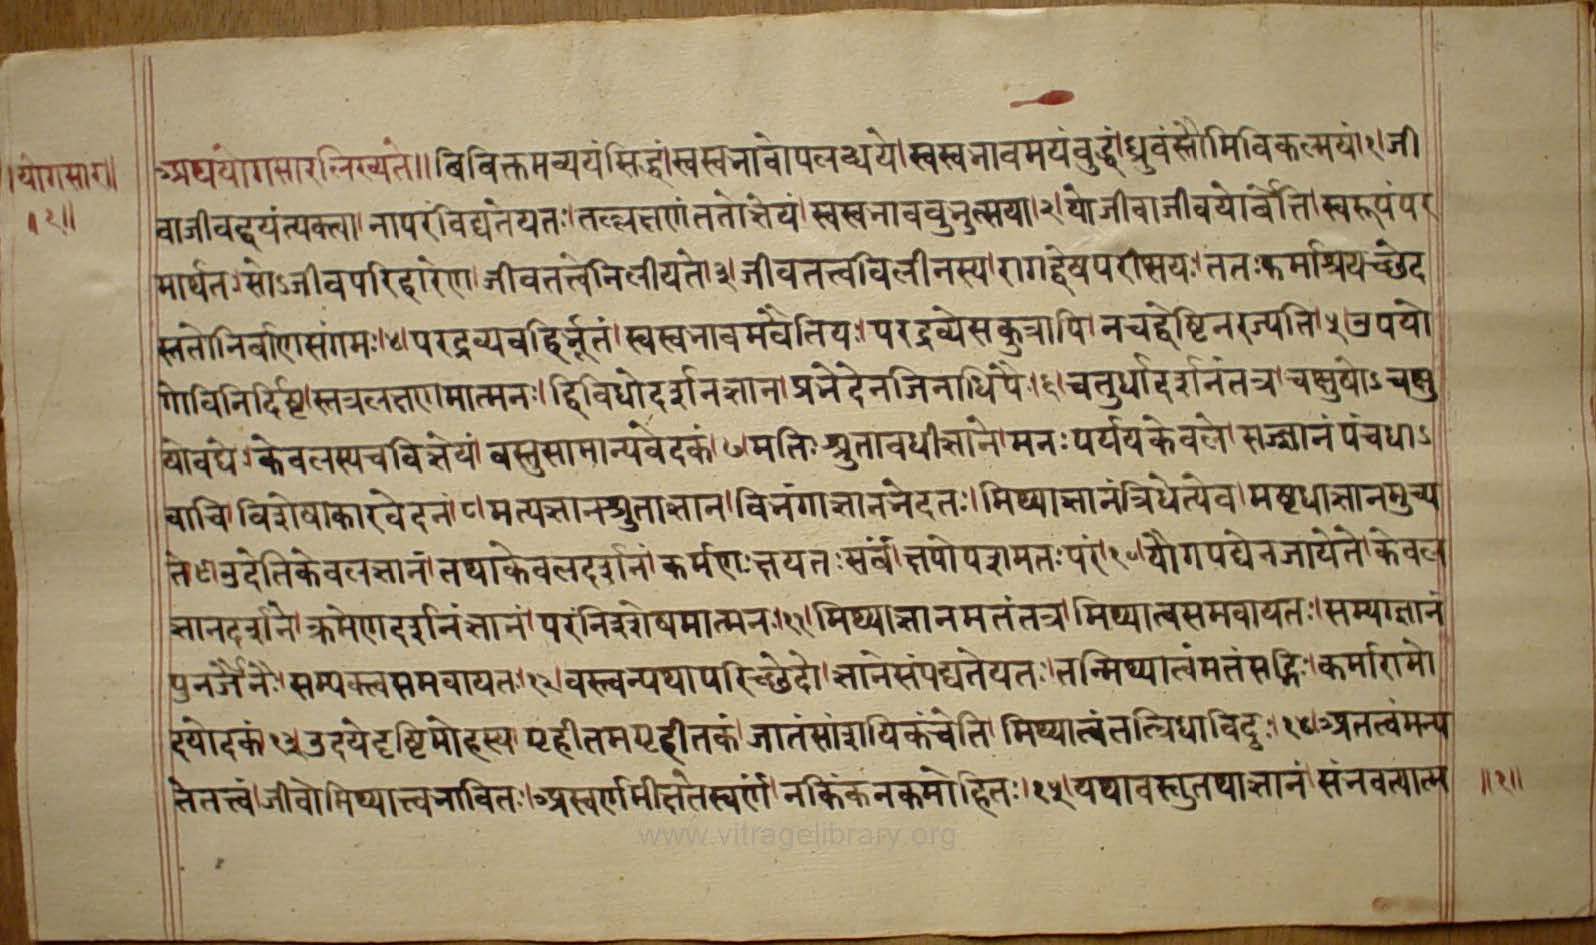 ।योगसार॥
॥१॥
अथ योगसार लिख्यते॥ विविक्तमव्ययं सिद्धं। स्वस्वभावोपलब्धये। स्वस्वभावमयं बुद्धं। ध्रुवं स्तौमि विकल्मषं।१। जी
वाजीवद्वयं त्यक्त्वा। नापरं विद्यते यतः। तल्लक्षणं ततो ज्ञेयं। स्वस्वभावबुभुत्सया।२। यो जीवाजीवयोर्वेत्ति। स्वरूपं पर
मार्थतः। सोऽजीवपरिहारेण। जीवतत्त्वे निलीयते।३। जीवतत्त्वविलीनस्य। रागद्वेषपरीक्षयः। ततः कर्माश्रयच्छेद
स्ततो निर्वाणसंगमः।४। परद्रव्यबहिर्भूतं। स्वस्वभावमवैति यः। परद्रव्ये स कुत्रापि। न च द्वेष्टि न रज्यति।५। उपयो
गो विनिर्दिष्ट। स्तत्र लक्षणमात्मनः। द्विविधो दर्शनज्ञान। प्रभेदेन जिनाधिपैः।६। चतुर्धा दर्शनं तत्र। चक्षुषोऽचक्षु
षोवधेः। केवलस्य च विज्ञेयं। वस्तुसामान्यवेदकं।७। मतिः श्रुतावधी ज्ञाने। मनःपर्ययकेवले। सज्ज्ञानं पंचधाऽ
वाचि। विशेषाकारवेदनं।८। मत्यज्ञानश्रुताज्ञान। विभंगाज्ञानभेदतः। मिथ्याज्ञानं त्रिधेत्येव। मष्टधा ज्ञानमुच्य
ते।९। उदेति केवलज्ञानं। तथा केवलदर्शनं। कर्मणः क्षयतः सर्वं। क्षयोपशमतः परं।१०। यौगपद्येन जायेते। केवल
ज्ञानदर्शने। क्रमेण दर्शनं ज्ञानं। परं निश्शेषमात्मनः।११। मिथ्याज्ञानमतं तत्र। मिथ्यात्वसमवायतः। सम्यग्ज्ञानं
पुनर्जैनैः। सम्यक्त्वसमवायतः।१२। वस्त्वन्यथापरिच्छेदो। ज्ञाने संपद्यते यतः। तन्मिथ्यात्वं मतं सद्भिः। कर्मारामो
दयोदकं।१३। उदये दृष्टिमोहस्य। गृहीतमगृहीतकं। जातं सांशयिकं चेति। मिथ्यात्वं तत्त्रिधा विदुः।१४। अतत्त्वं मन्य
ते तत्त्वं। जीवो मिथ्यात्त्वभावितः। अस्वर्णमीक्षते स्वर्णं। न किं कनकमोहितः।१५। यथावस्तु तथा ज्ञानं। संभवत्यात्म
॥१॥
www.vitragelibrary.org